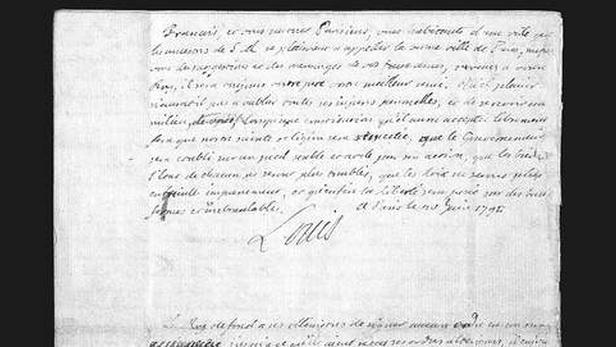 Francois, et vous Parisiens, vous habitants d'une ville que
les ancestres de S. M. se plaisoient a appeller la bonne ville de Paris, mefiez
vous des suggestions et des mensonges de vos faux amis, revenez a votre
Roy, il sera toujours votre pere votre meilleur ami. Quel plaisir
n'aurat'il pas a oublier toutes ses injures personnelles, et de se revoir au
milieu de vous, Lorsqu'une constitution qu'il aura acceptée librement
fera que notre sainte religion sera respectée, que le Gouvernement
sera etabli sur un pied stable et utile par son action, que les biens
l'etat de chacun ne seront plus troublés, que les loix ne seront plus
impunement, et qu'enfin la liberté sera posée sur des bases
fermes et inebranlables. A Paris le 20 Juin 1791
Louis
Le Roy defend a ses ministres de signer aucun ordre en son nom